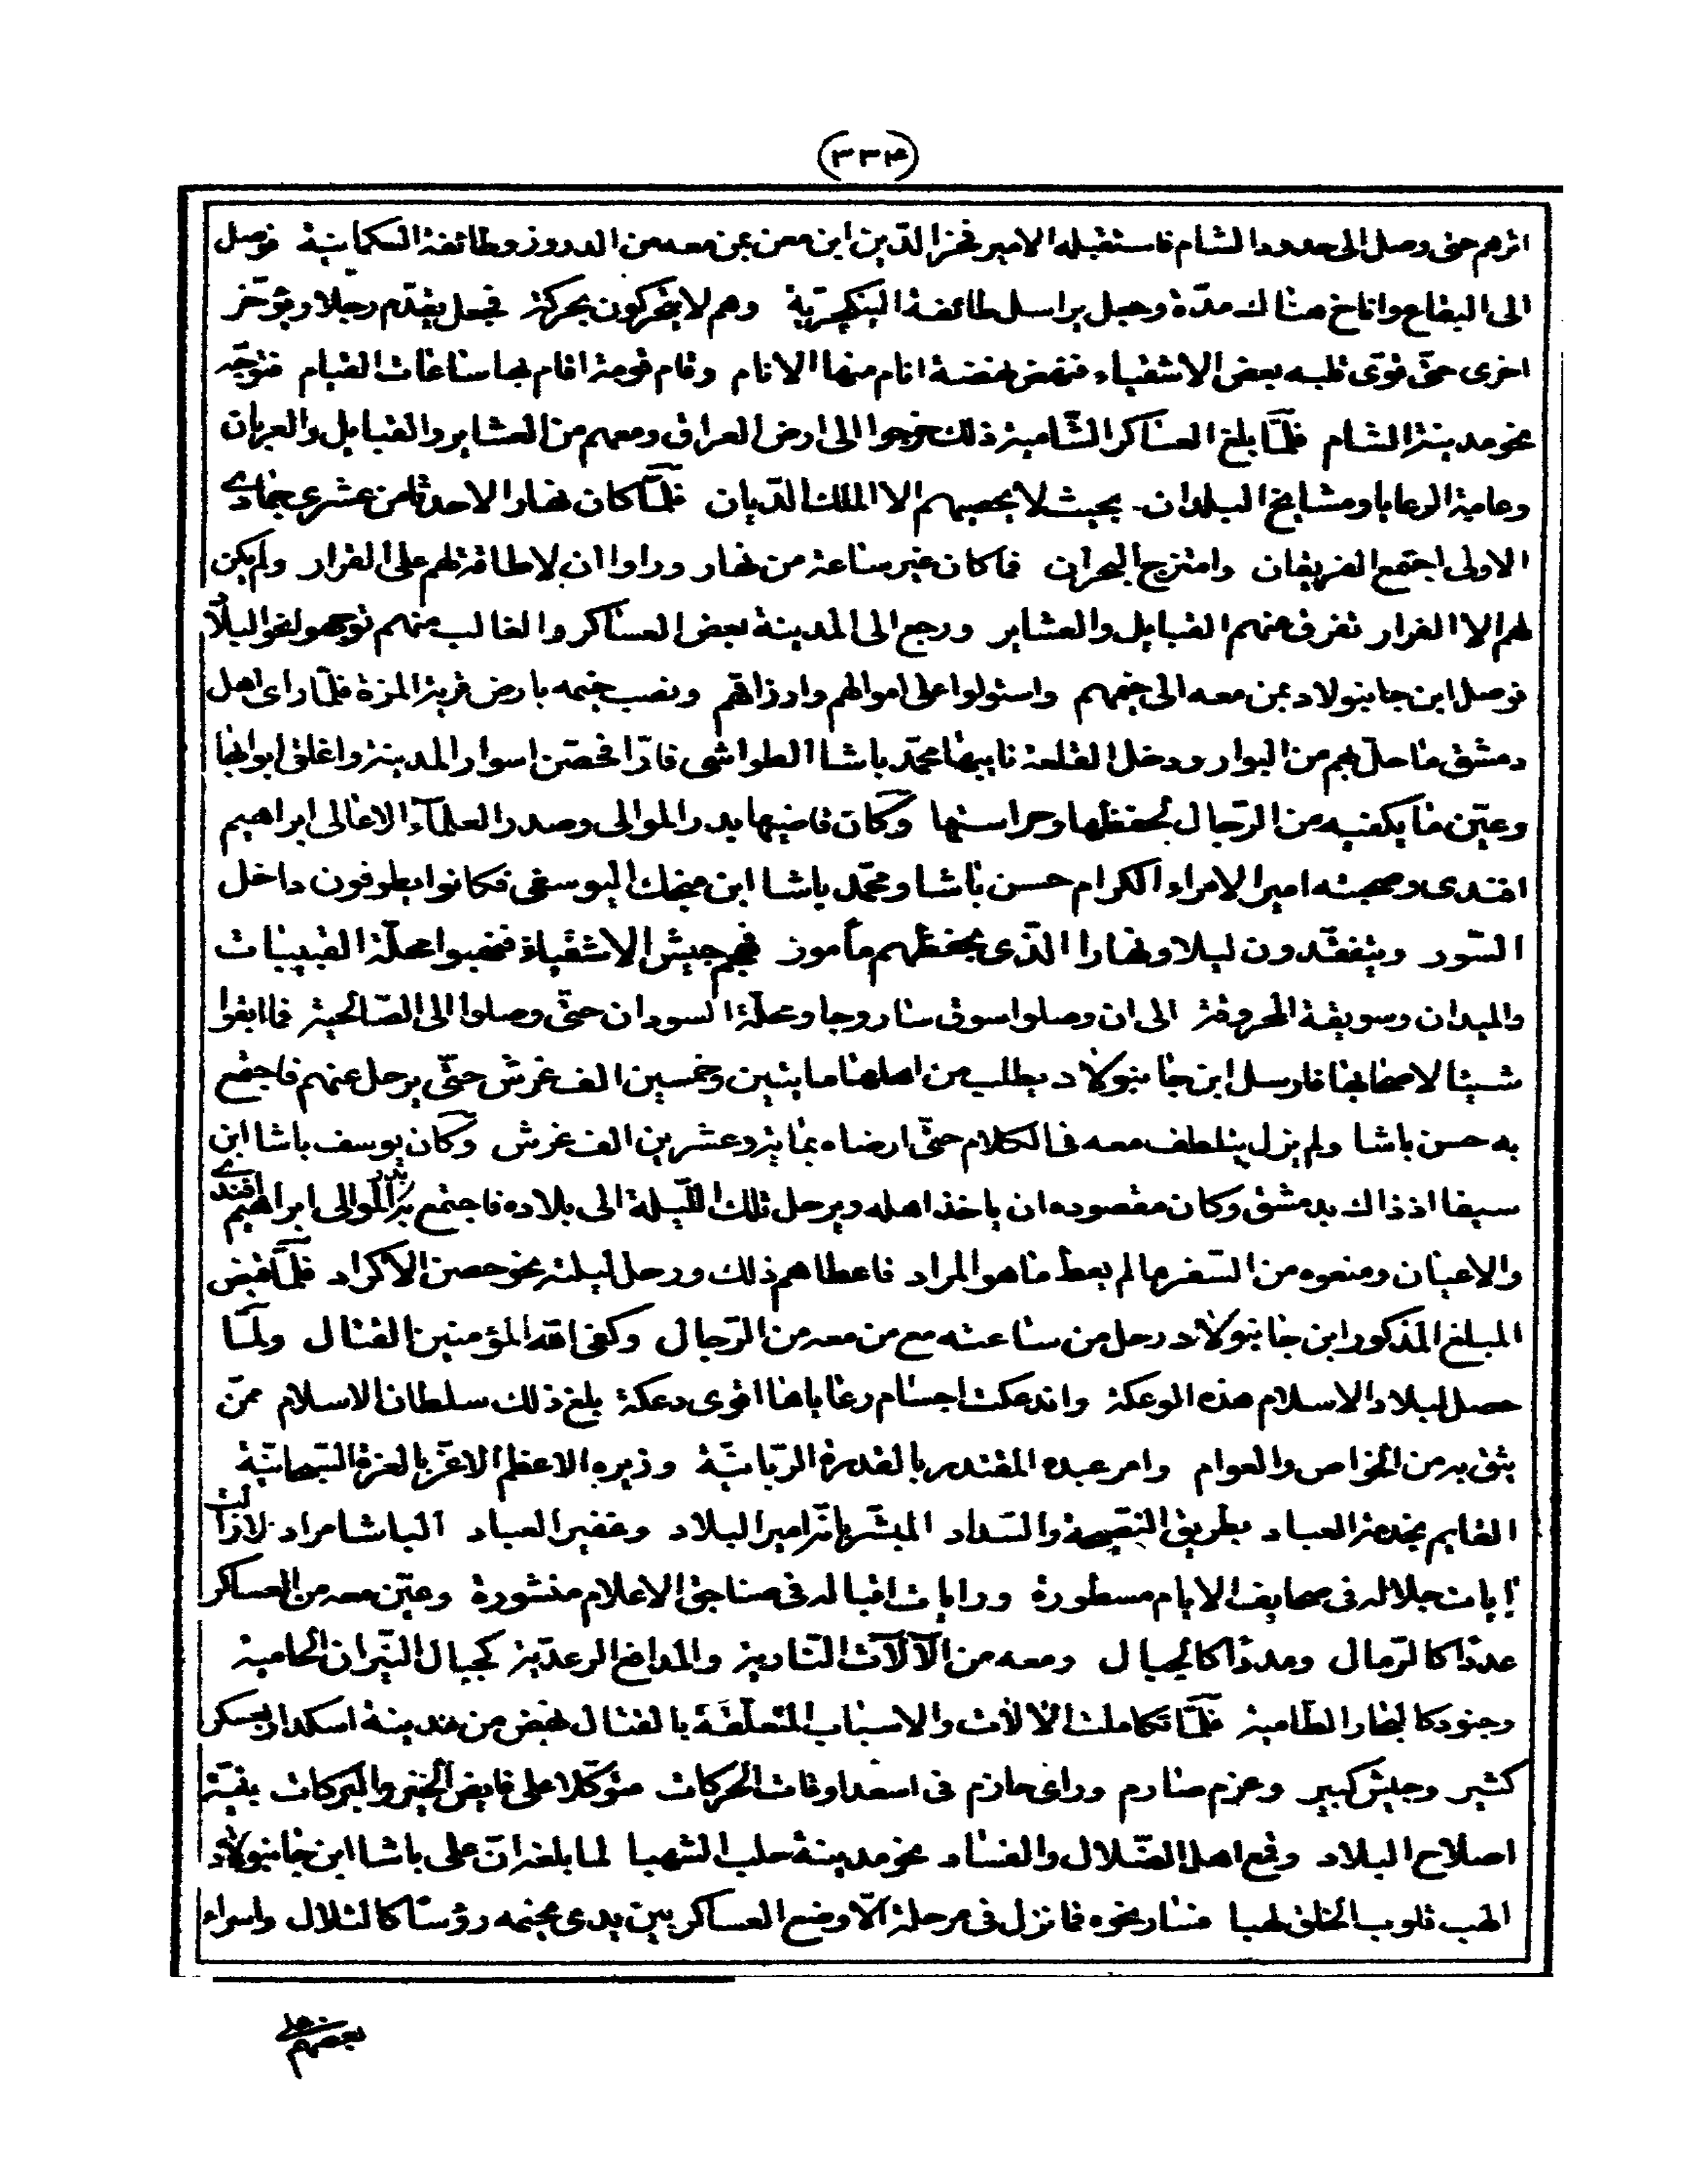 (٣٣٤)
اثرهم حتى وصل الى حدود الشام فاستقبله الامير فخر الدّين ابن معن بمن معه من الدروز وطائفة السكمانية فوصل
الى البقاع واناخ هناك مدّة وجعل يراسل طائفة الينكجريّة وهم لا يتحركون بحركة فجعل يقدّم رجلا ويؤخّر
اخرى حتّى قوّى قلبه بعض الاشقياء فنهض نهضة انام منها الانام وقام قومة اقام بها ساعات القيام فتوجّه
نحو مدينة الشام فلمّا بلغ العساكر الشّامية ذلك خرجوا الى ارض العراق ومعهم من العشاير والقبايل والعربان
وعامة الرعايا ومشايخ البلدان بحيث لا يحصيهم الا الملك الدّيان فلمّا كان نهار الاحد ثامن عشرى جمادى
الاولى اجتمع الفريقان وامتزج البحران فما كان غير ساعة من نهار وراوا ان لا طاقة لهم على القرار ولم يكن
لهم الا الفرار تفرق منهم القبايل والعشاير ورجع الى المدينة بعض العساكر والغالب منهم توجهوا نحو البلاد
فوصل ابن جانبولاد بمن معه الى خيمهم واستولوا على اموالهم وارزاقهم ونصب خيمه بارض قرية المزة فلمّا راى اهل
دمشق ما حلّ بهم من البوار ودخل القلعة نايبها محمّد باشا الطواشى فارّا فحصّن اسوار المدينة واغلق ابوابها
وعيّن ما يكفيه من الرّجال لحفظها وحراستها وكان قاضيها بدر الموالى وصدر العلمآء الاعالى ابراهيم
افندى وصحبته امير الامراء الكرام حسن باشا ومحمّد باشا ابن منجك اليوسفى فكانوا يطوفون داخل
السّور ويتفقّدون ليلا ونهارا الذّى بحفظهم مأمور فهجم جيش الاشقياء فنهبوا محلّة القبيبات
والميدان وسويقة المحروقة الى ان وصلوا سوق ساروجا ومحلّة السودان حتّى وصلوا الى الصّالحية فما ابقوا
شيئا لاصحابها فارسل ابن جانبولاد يطلب من اهلها مايتين وخمسين الف غرش حتّى يرحل عنهم فاجتمع
به حسن باشا ولم يزل يتلطف معه فى الكلام حتّى ارضاه بماية وعشرين الف غرش وكان يوسف باشا ابن
سيفا اذ ذاك بدمشق وكان مقصوده ان ياخذ اهله ويرحل تلك اللّيلة الى بلاده فاجتمع به بدر الموالى ابراهيم افندى
والاعيان ومنعوه من السّفر ما لم يعط ما هو المراد فاعطاهم ذلك ورحل ليلته نحو حصن الاكراد فلمّا قبض
المبلغ المذكور ابن جانبولاد رحل من ساعته مع من معه من الرّجال وكفى الله المؤمنين القتال ولمّا
حصل لبلاد الاسلام هذه الموعكة واندعكت اجسام رعاياها اقوى دعكة بلغ ذلك سلطان الاسلام ممّن
يثق به من الخواص والعوام وامر عبده المقتدر بالقدرة الربّانيّة وزيره الاعظم الاعزّ بالعزة السّبحانيّة
القايم بخدمة العباد بطريق النّصيحة والسّداد المبشّر بانّه امير البلاد وخفير العباد الباشا مراد لا زالت
ايات جلاله فى صحايف الايام مسطورة ورايات اقباله فى صناجق الاعلام منشورة وعيّن معه من العساكر
عددًا كالرّمال ومددًا كالجبال ومعه من الآلات النّارية والمدافع الرعديّة كجبال النّيران الحامية
وجنود كالبحار الطّامية فلمّا تكاملت الالات والاسباب المتعلّقة بالقتال نهض من مدينة اسكدار بعسكر
كثير وجيش كبير وعزم صارم وراى حازم فى اسعد اوقات الحركات متوكّلا على فايض الخير والبركات بنيّة
اصلاح البلاد وقمع اهل الضّلال والفساد نحو مدينة حلب الشهبا لما بلغه انّ على باشا ابن جانبولاد
الهب قلوب الخلق لهبا فسار نحوه فما نزل فى مرحلة الّا وضع العساكر بين يدى مخيّمه رؤسًا كالتلال واسراء
بعضهم على